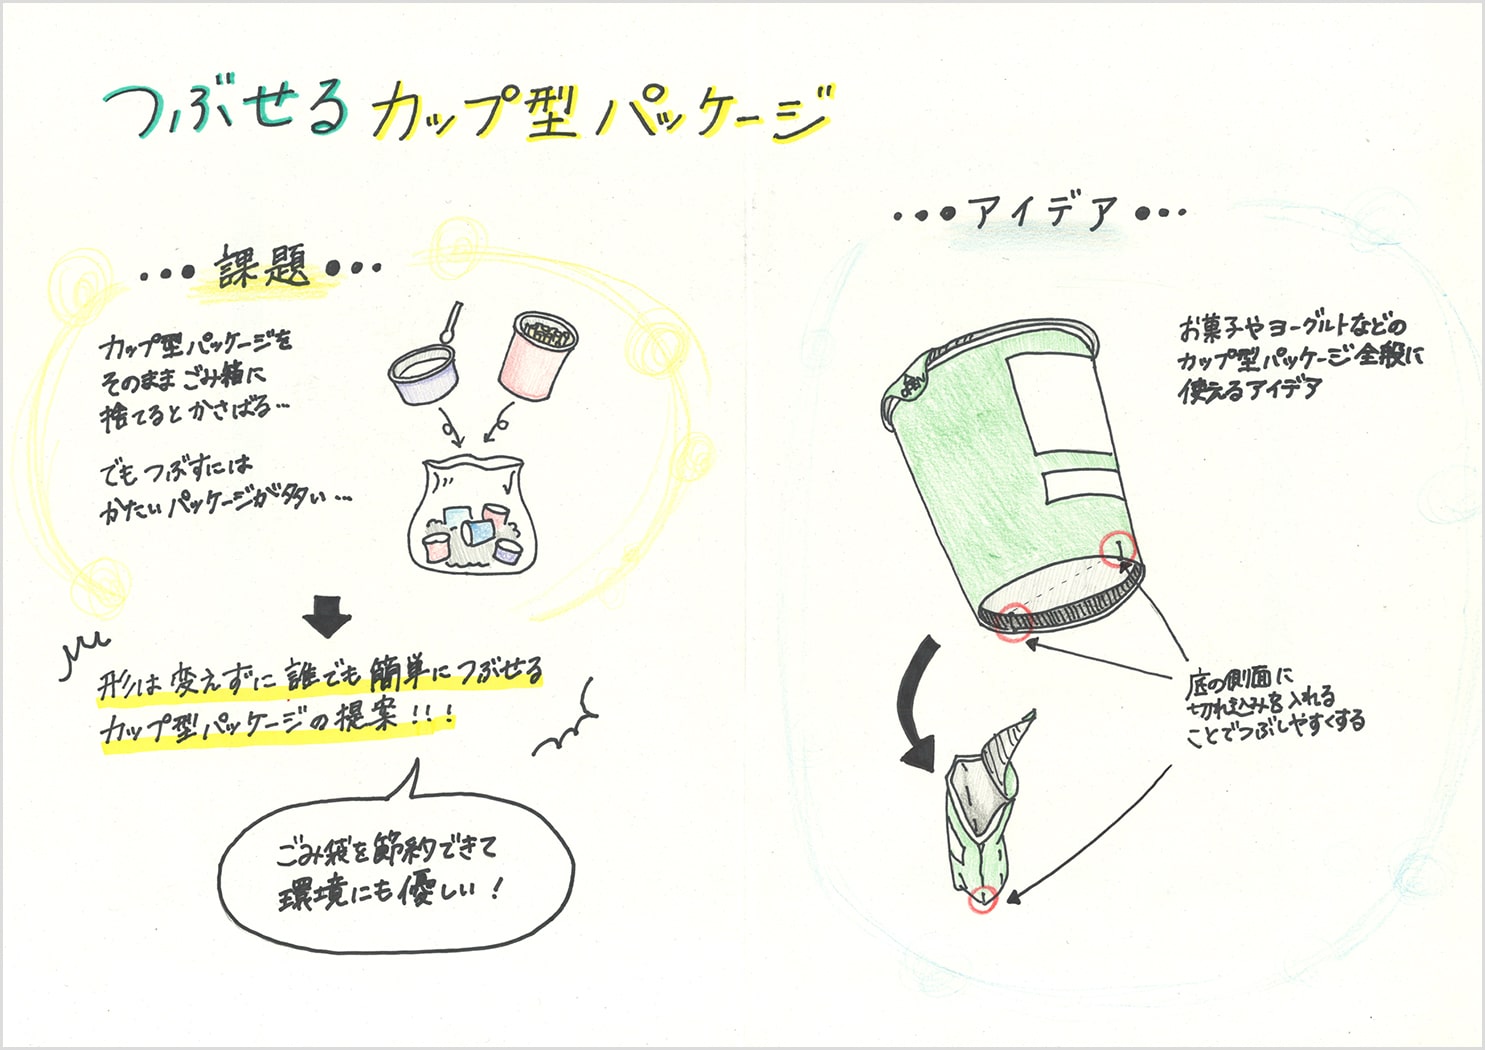 つぶせるカップ型パッケージ
•••課題•••
カップ型パッケージを
そのままごみ箱に
捨てるとかさばる…
でもつぶすには
かたいパッケージが多い…
形は変えずに誰でも簡単につぶせる
カップ型パッケージの提案!!!
ごみ袋を節約できて
環境にも優しい!
•••アイデア•••
お菓子やヨーグルトなどの
カップ型パッケージ全般に
使えるアイデア
OPEN
底の側面に
切れ込みを入れる
ことでつぶしやすくする